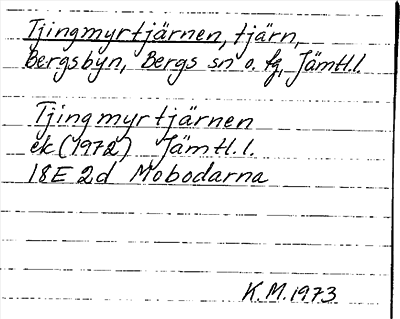 Tjingmyrtjärnen, tjärn,
Bergsbyn, Bergs sn o. tg, Jämtl. l.
Tjingmyrtjärnen
ek (1972) Jämtl. l.
18E 2d Mobodarna
K.M. 1973